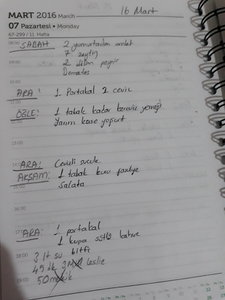 MART 2016 March
16 Mart
07 Pazartesi • Monday
67-299 / 11. Hafta
SABAH: 2 yumurtadan omlet
7 zeytin
2 dilim peynir
Domates
ARA: 1 Portakal 2 ceviz
ÖĞLE: 1 tabak kadar kereviz yemeği
Yarım kase yoğurt
ARA: Cevizli
AKŞAM: 1 tabak kuru fasulye
Salata
ARA: 1 portakal
1 kupa sütlü kahve
3 lt su bitti
45 dk leslie
50